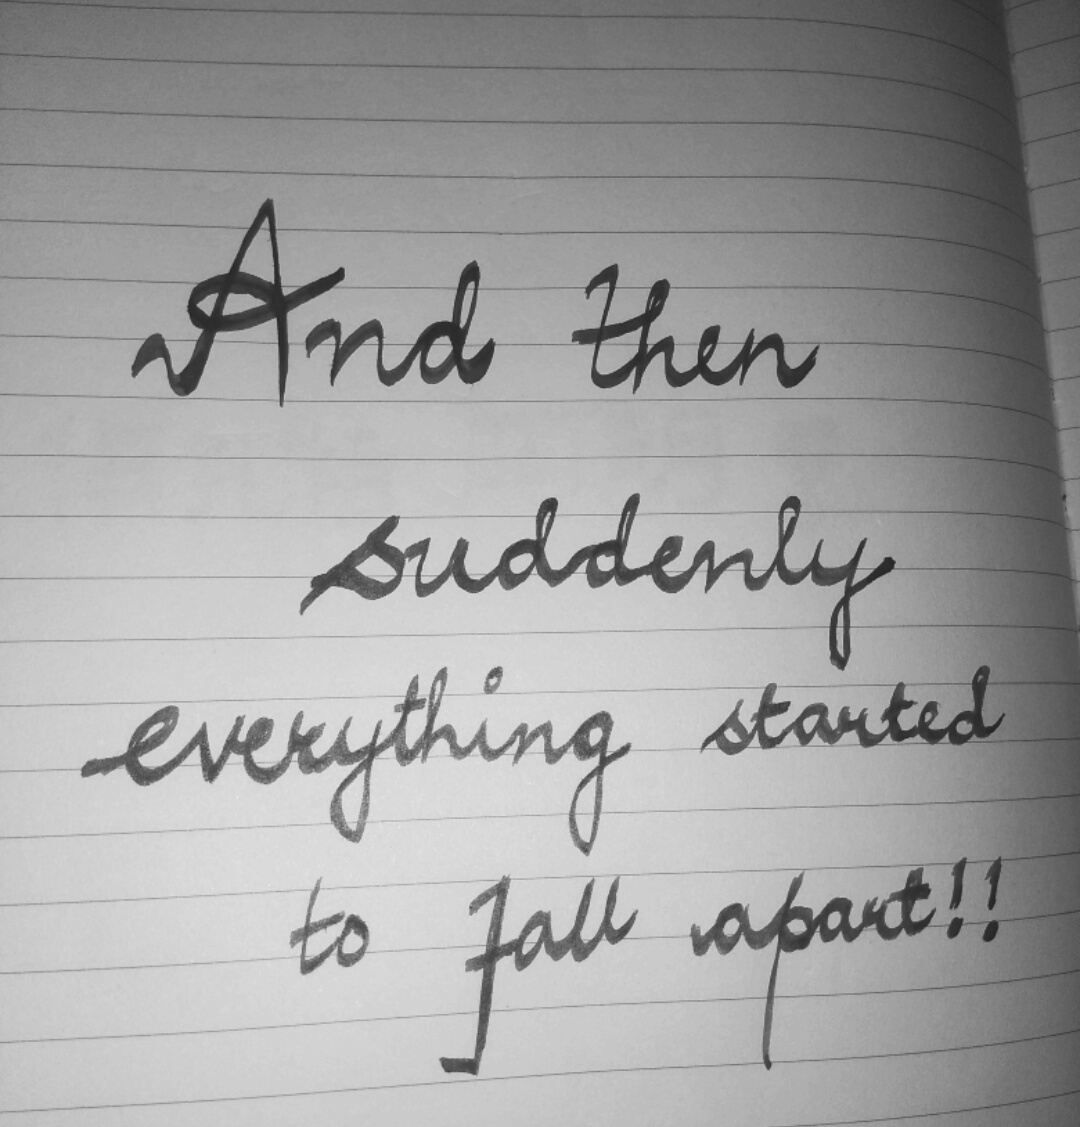 And then
suddenly
everything started
to fall apart!!